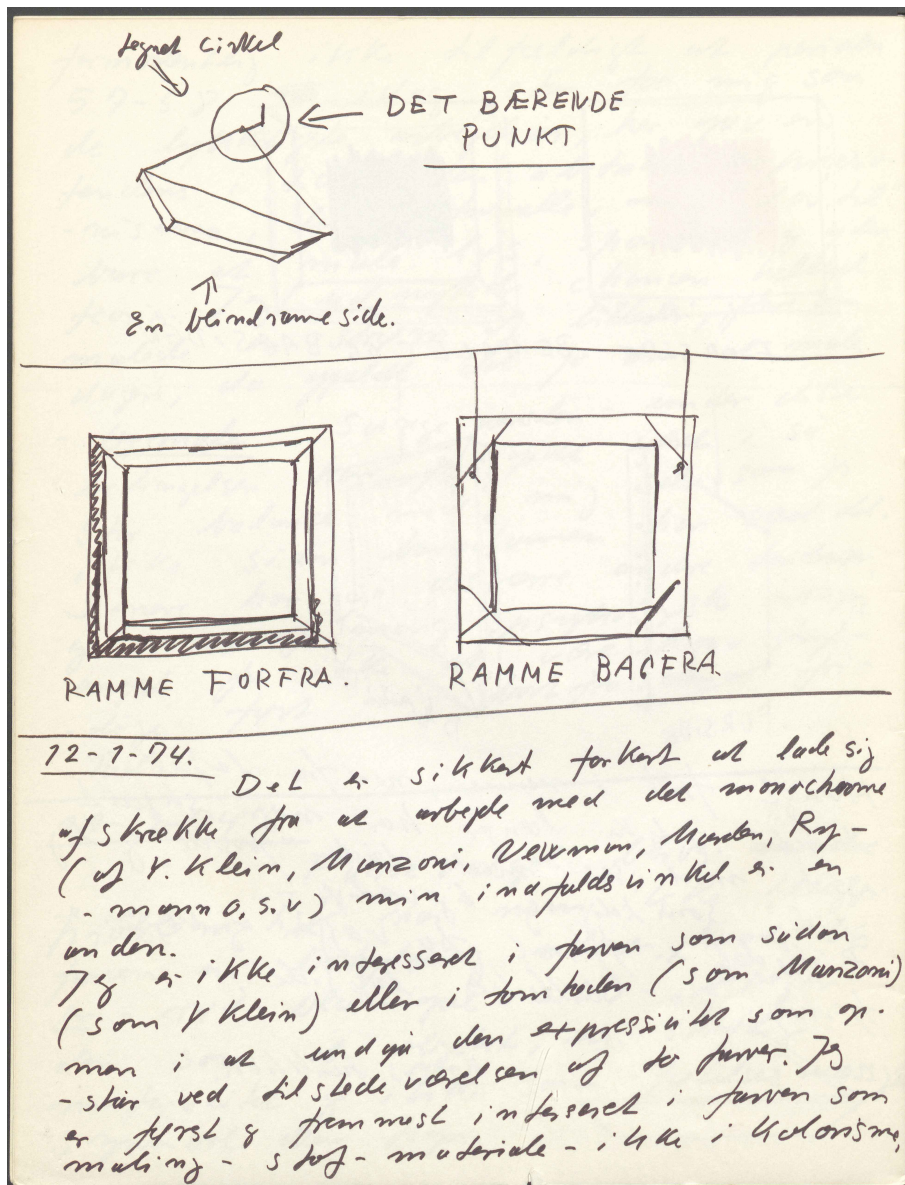 tegnet cirkel
DET BÆRENDE
PUNKT
En blindrammeside.
RAMME FORFRA.
RAMME BAGFRA.
12-1-74.
Det er sikkert forkert at lade sig
afskrække fra at arbejde med det monochrome
(af Y. Klein, Manzoni, Newman, Marden, Ry-
-mann o.s.v) min indfaldsvinkel er en
anden.
Jeg er ikke interesseret i farven som sådan
(som Y Klein) eller i tomheden (som Manzoni)
men i at undgå den expressivitet som op-
-står ved tilstedeværelsen af to farver. Jeg
er først & fremmest interseret i farven som
maling - stof - materiale - ikke i kolorisme,